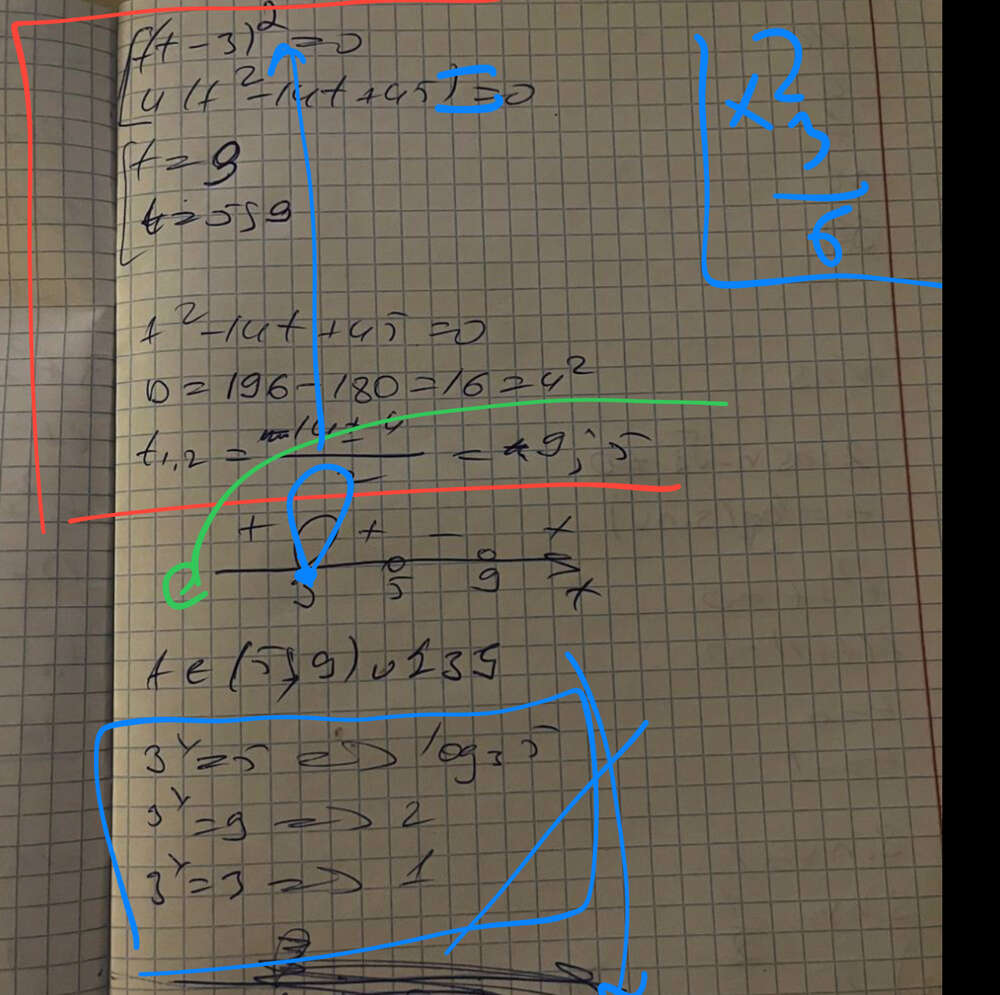 (t-3)²=0
4(t²-14t+45)=0
t=9
t=5;9
t²-14t+45=0
D=196-180=16=4²
t₁,₂ = 14±4 / 2 = 9; 5
+ + - +
3 5 9 x
t∈(5;9)∪{3}
3ˣ=5 => log₃5
3ˣ=9 => 2
3ˣ=3 => 1
x 2
3
6